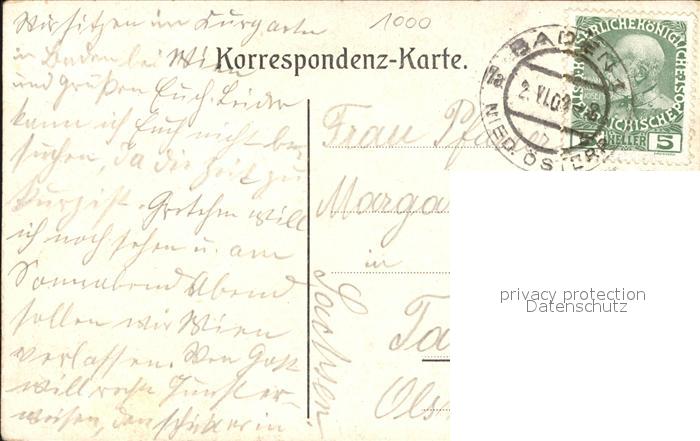 Wir sitzen im Kurgarten
in Baden bei Wien
und grüßen Euch. Leider
kann ich Euch nicht be-
suchen, da die Zeit zu
kurz ist. Gretchen will
ich noch sehen u. am
Sonnabend Abend
sollen wir Wien
verlassen. Wen Gott
will rechte Gunst er-
weisen, den schickt er in
1000
Korrespondenz-Karte.
Frau Pfa
Marga
in
Ta
Ols
Sachsen.
BADEN 1
2.VI.09
NIED. ÖSTERR
KAISERLICHE KÖNIGLICHE
ÖSTERREICHISCHE
HELLER 5
privacy protection
Datenschutz